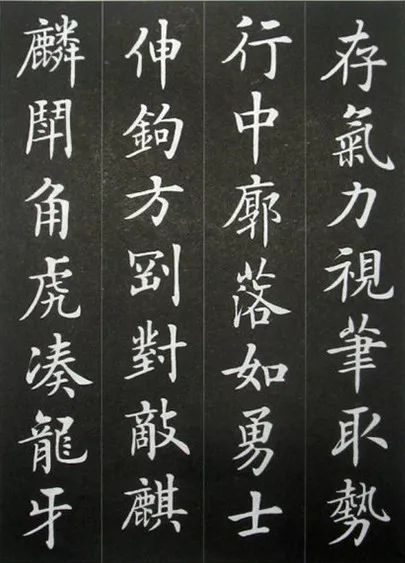 存氣力視筆取勢
行中廓落如勇士
伸鉤方剄對敵麒
麟鬪角虎湊龍牙